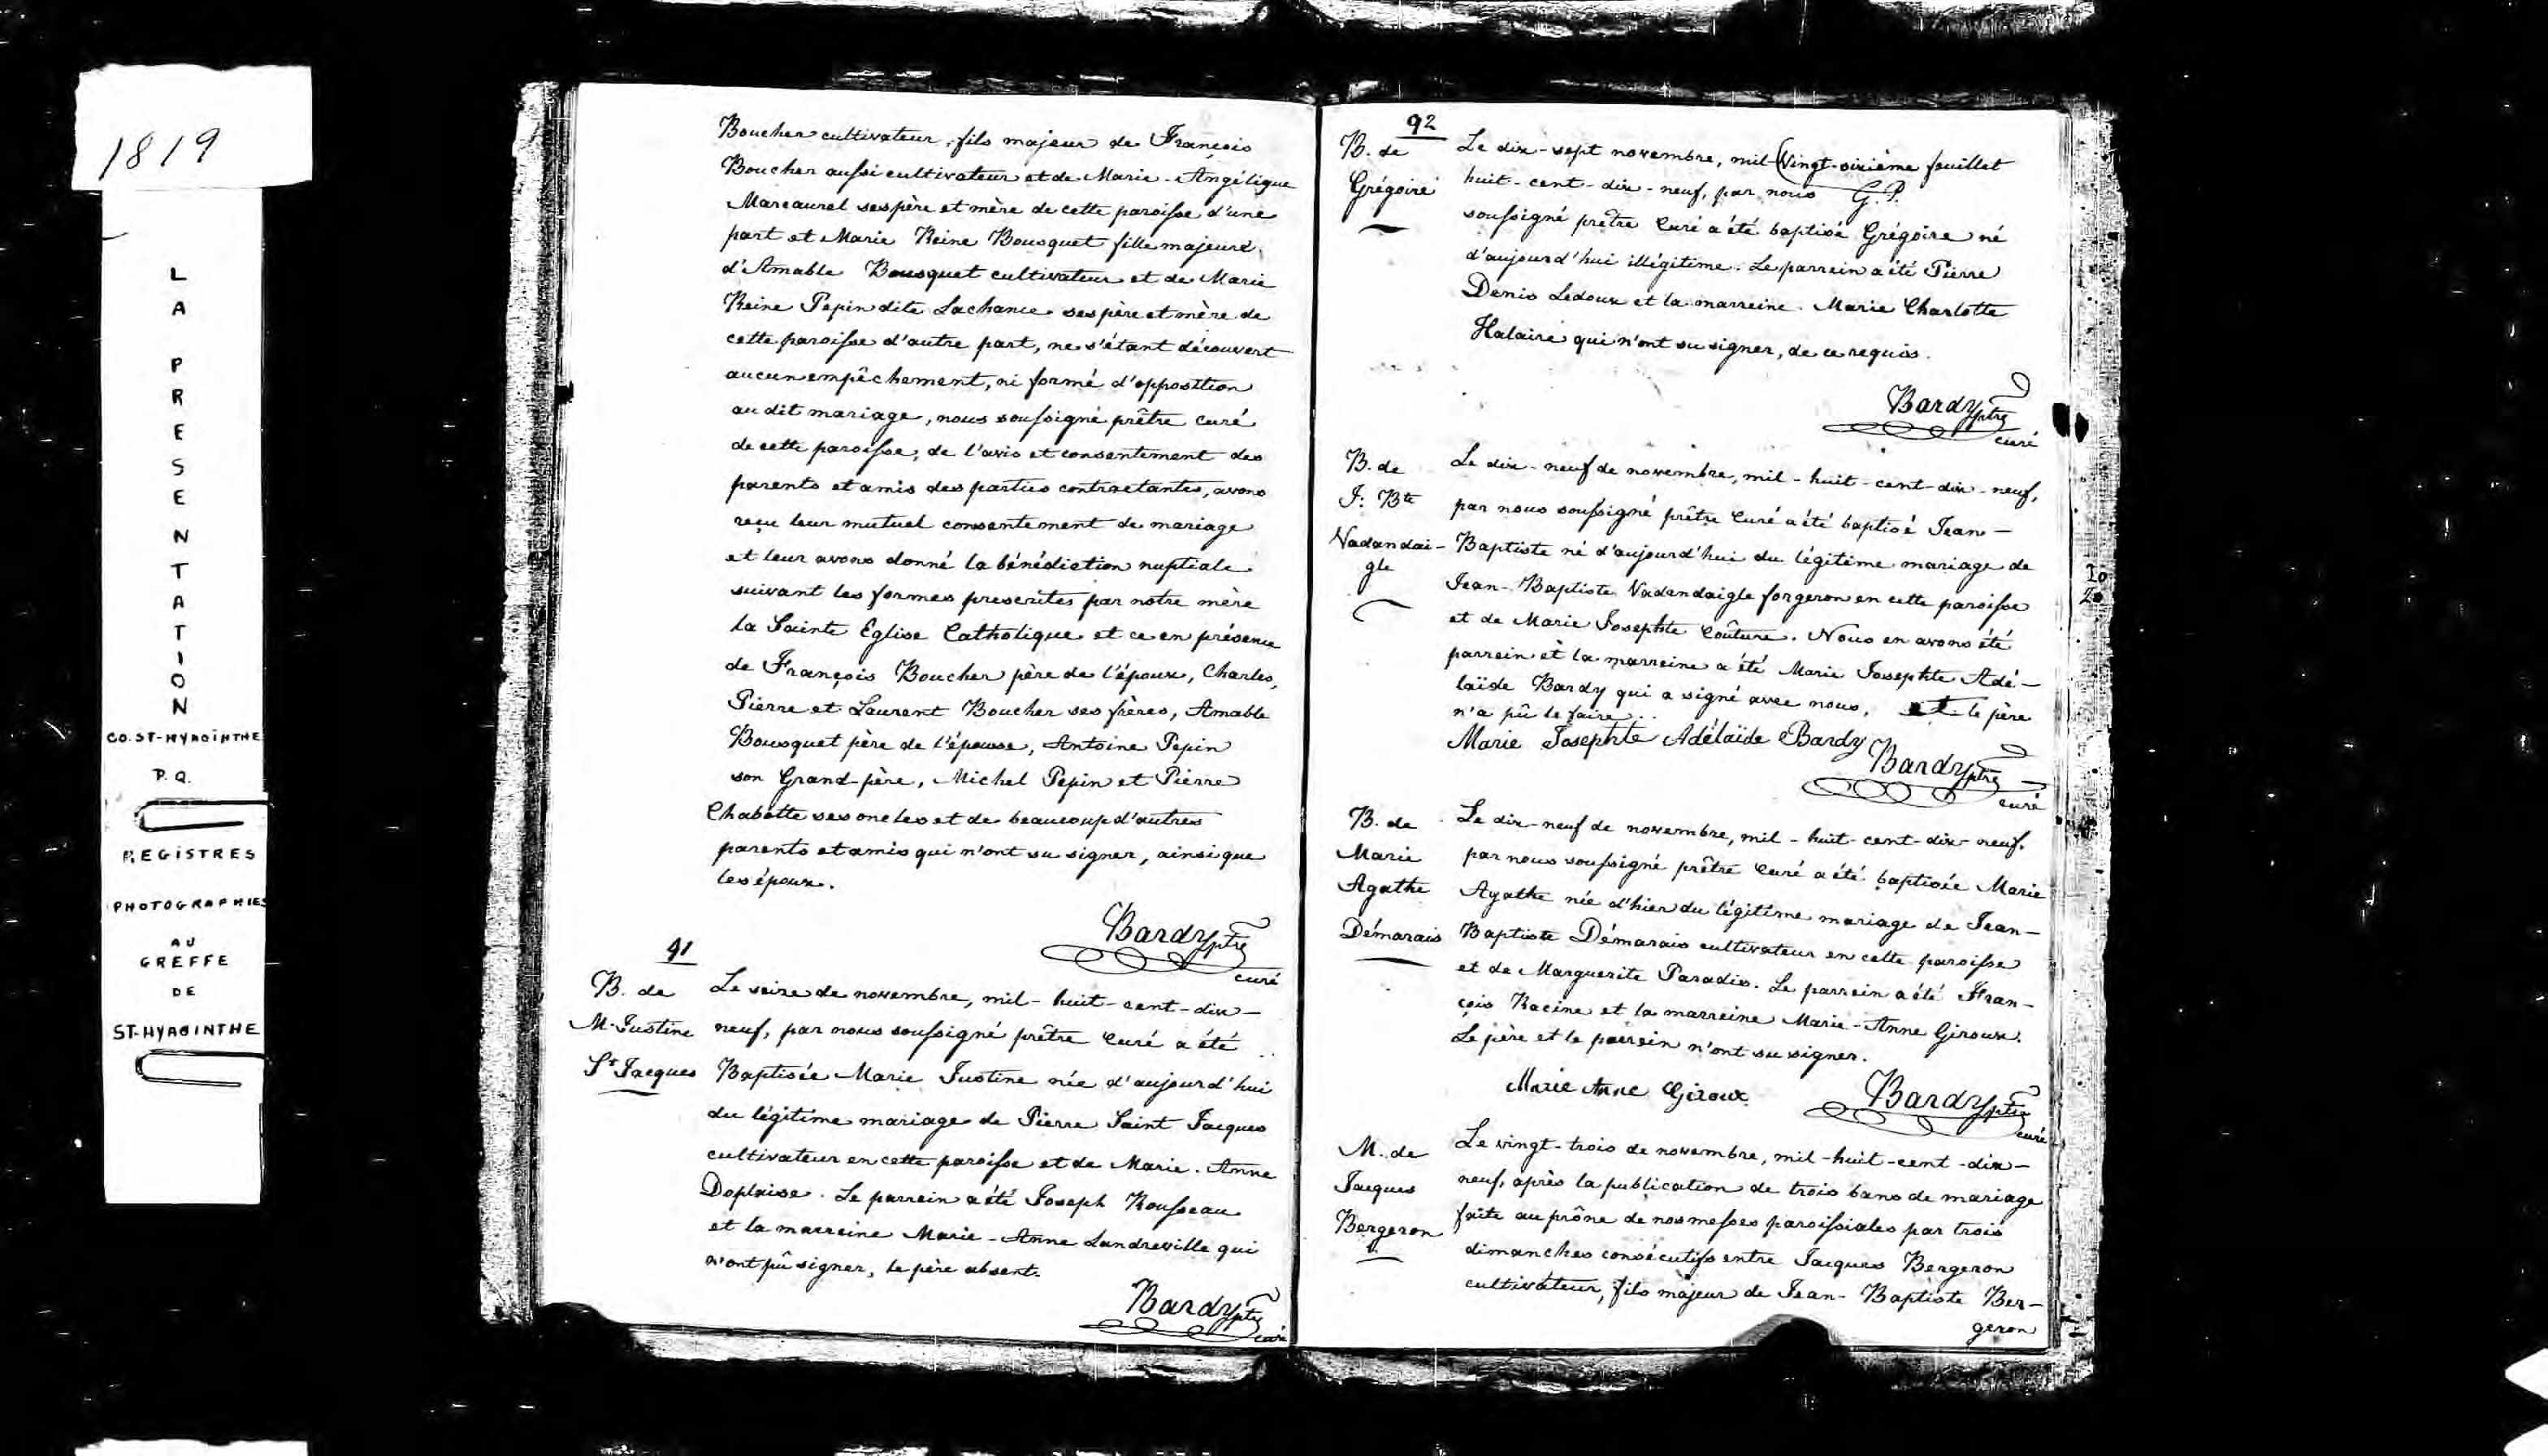 1819
LA PRESENTATION
CO. ST-HYACINTHE
P.Q.
REGISTRES
PHOTOGRAPHIES
AU
GREFFE
DE
ST-HYACINTHE
Boucher cultivateur, fils majeur de François
Boucher aussi cultivateur et de Marie-Angélique
Marcaurel ses père et mère de cette paroisse d'une
part et Marie Reine Bousquet fille majeure
d'Amable Bousquet cultivateur et de Marie
Reine Pepin dite Lachance ses père et mère de
cette paroisse d'autre part, ne s'étant découvert
aucun empêchement, ni formé d'opposition
au dit mariage, nous soussigné prêtre curé
de cette paroisse, de l'avis et consentement des
parents et amis des parties contractantes, avons
reçu leur mutuel consentement de mariage
et leur avons donné la bénédiction nuptiale
suivant les formes prescrites par notre mère
la Sainte Eglise Catholique et ce en présence
de François Boucher père de l'époux, Charles,
Pierre et Laurent Boucher ses frères, Amable
Bousquet père de l'épouse, Antoine Pepin
son Grand-père, Michel Pepin et Pierre
Chabotte ses oncles et de beaucoup d'autres
parents et amis qui n'ont su signer, ainsi que
les époux.
Bardy ptre
curé
91
B. de
M. Justine
St Jacques
Le seize de novembre, mil-huit-cent-dix-
neuf, par nous soussigné prêtre Curé a été
Baptisée Marie Justine née d'aujourd'hui
du légitime mariage de Pierre Saint Jacques
cultivateur en cette paroisse et de Marie-Anne
Doplaise. Le parrein a été Joseph Rousseau
et la marreine Marie-Anne Landreville qui
n'ont pû signer, le père absent.
Bardy ptre
curé
92
B. de
Grégoire
Le dix-sept novembre, mil (Vingt-sixième feuillet
huit-cent-dix-neuf, par nous G.P.
soussigné prêtre Curé a été baptisé Grégoire né
d'aujourd'hui illégitime. Le parrein a été Pierre
Denis Ledoux et la marreine Marie Charlotte
Halaire qui n'ont su signer, de ce requis.
Bardy ptre
curé
B. de
J: Bte
Nadandai-
gle
Le dix-neuf de novembre, mil-huit-cent-dix-neuf,
par nous soussigné prêtre Curé a été baptisé Jean-
Baptiste né d'aujourd'hui du légitime mariage de
Jean-Baptiste Nadandaigle forgeron en cette paroisse
et de Marie Josephte Coûture. Nous en avons été
parrein et la marreine a été Marie Josephte Adé-
laïde Bardy qui a signé avec nous, et le père
n'a pû le faire..
Marie Josephte Adélaïde Bardy
Bardy ptre
curé
B. de
Marie
Agathe
Démarais
Le dix-neuf de novembre, mil-huit-cent-dix-neuf.
par nous soussigné prêtre Curé a été baptisée Marie
Agathe née d'hier du légitime mariage de Jean-
Baptiste Démarais cultivateur en cette paroisse
et de Marguerite Paradis. Le parrein a été Fran-
çois Racine et la marreine Marie-Anne Giroux.
Le père et le parrein n'ont su signer.
Marie Anne Giroux
Bardy ptre
curé
M. de
Jacques
Bergeron
Le vingt-trois de novembre, mil-huit-cent-dix-
neuf, après la publication de trois bans de mariage
faite au prône de nos messes paroissiales par trois
dimanches consécutifs entre Jacques Bergeron
cultivateur, fils majeur de Jean-Baptiste Ber-
geron